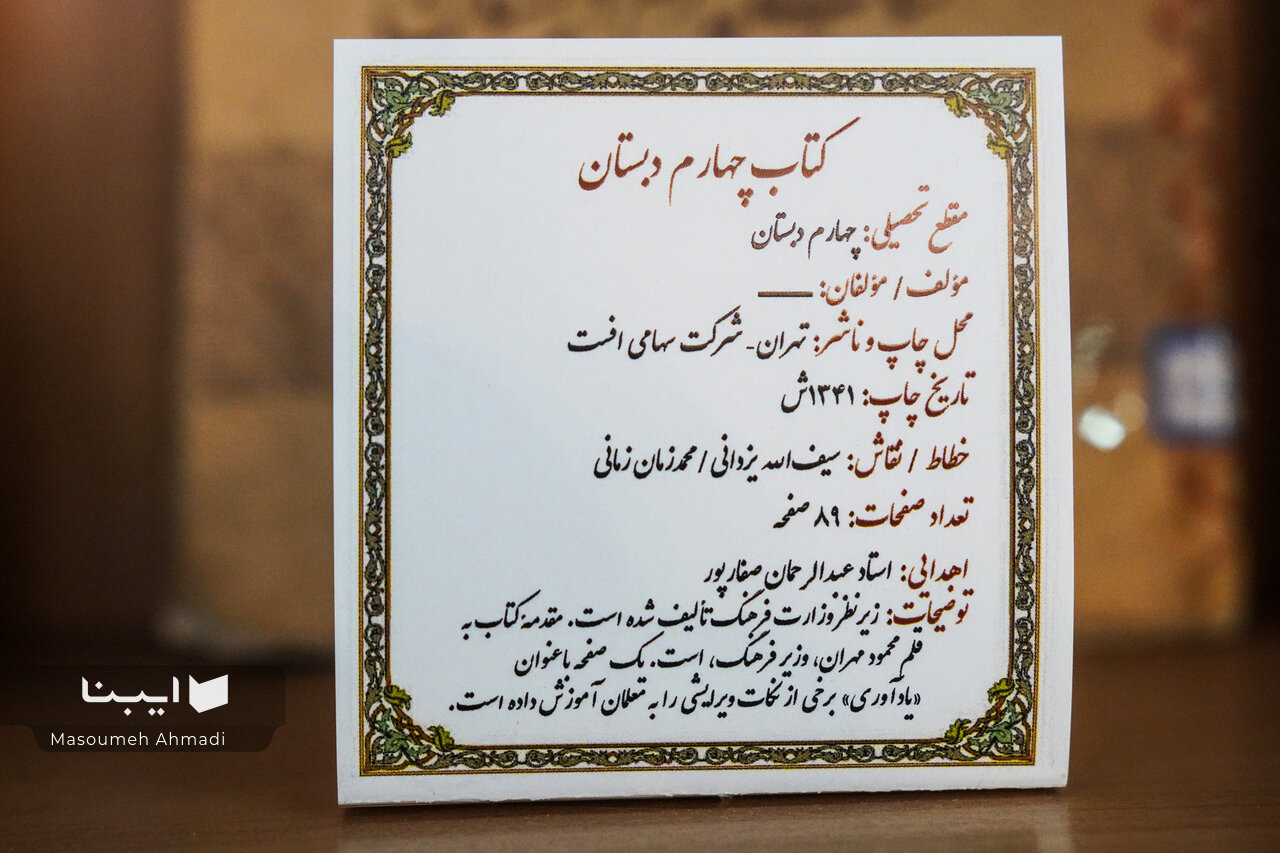 کتاب چهارم دبستان
مقطع تحصیلی: چهارم دبستان
مؤلف / مؤلفان: ــــ
محل چاپ و ناشر: تهران- شرکت سهامی افست
تاریخ چاپ: ۱۳۴۱ش
خطاط / نقاش: سیف‌الله یزدانی / محمدزمان زمانی
تعداد صفحات: ۸۹ صفحه
اهدائی: استاد عبدالرحمان صفارپور
توضیحات: زیر نظر وزارت فرهنگ تألیف شده است. مقدمهٔ کتاب به
قلم محمود مهران، وزیر فرهنگ، است. یک صفحه با عنوان
«یادآوری» برخی از نکات ویرایشی را به معلمان آموزش داده است.
ایبنا
Masoumeh Ahmadi